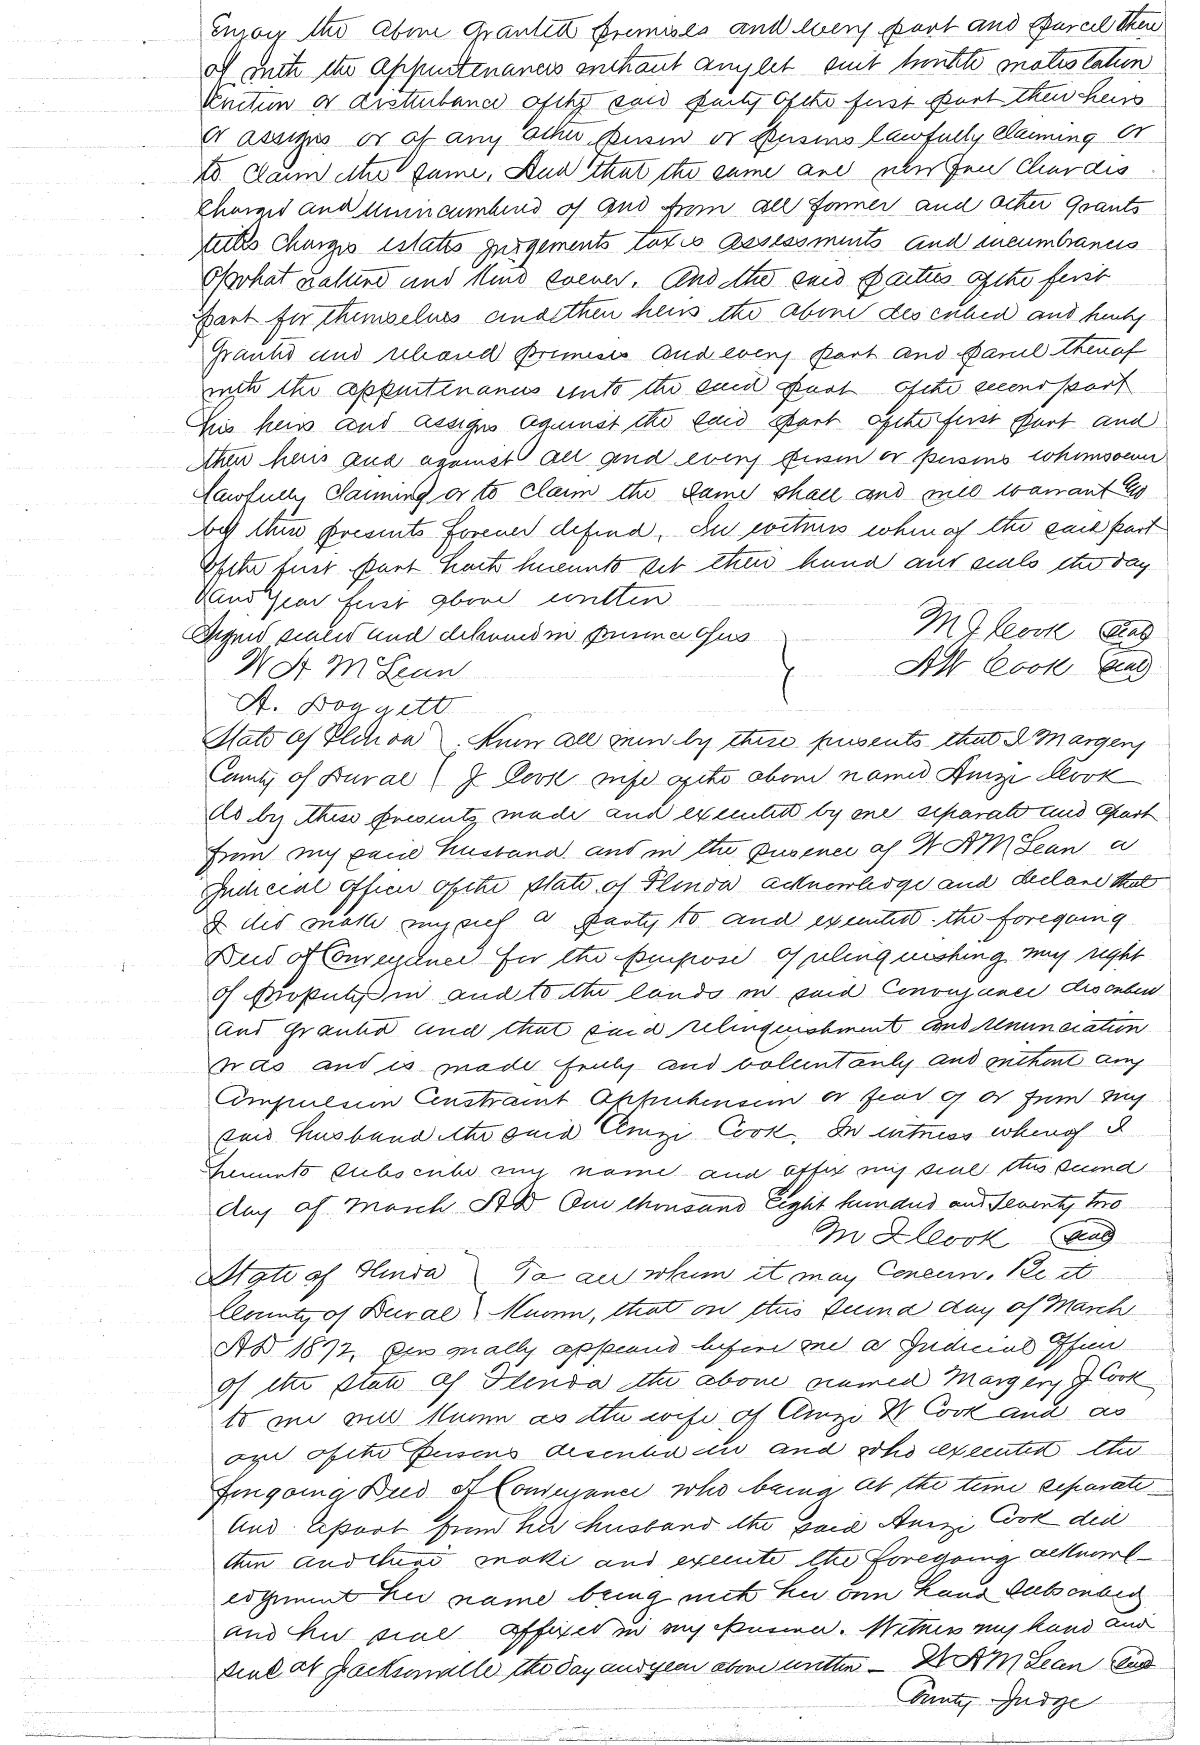 Enjoy the above granted premises and every part and parcel there
of with the appurtenances without any let suit trouble molestation
Eviction or disturbance of the said party of the first part their heirs
or assigns or of any other person or persons lawfully claiming or
to claim the same, And that the same are now free clear dis
charged and unincumbered of and from all former and other grants
titles charges estates judgements taxes assessments and incumbrances
of what nature and kind soever. And the said parties of the first
part for themselves and their heirs the above described and hereby
granted and released premises and every part and parcel thereof
with the appurtenances unto the said part of the second part
his heirs and assigns against the said part of the first part and
their heirs and against all and every person or persons whomsoever
lawfully claiming or to claim the same shall and will warrant &
by these presents forever defend, In witness whereof the said part
of the first part hath hereunto set their hand and seals the day
and year first above written
Signed sealed and delivered in presence of us
M J Cook Seal
W A McLean
A W Cook Seal
A. Doggett
State of Florida } Know all men by these presents that I Margery
County of Duval } J Cook wife of the above named Amzi Cook
do by these presents made and executed by me separate and apart
from my said husband and in the presence of W A McLean a
Judicial officer of the State of Florida acknowledge and declare that
I did make myself a party to and executed the foregoing
Deed of Conveyance for the purpose of relinquishing my right
of property in and to the lands in said Conveyance described
and granted and that said relinquishment and renunciation
was and is made freely and voluntarily and without any
Compulsion Constraint Apprehension or fear of or from my
said husband the said Amzi Cook. In witness whereof I
hereunto subscribe my name and affix my seal this second
day of March AD One thousand Eight hundred and Seventy two
M J Cook Seal
State of Florida } To all whom it may Concern. Be it
County of Duval } Known, that on this second day of March
AD 1872, personally appeared before me a Judicial Officer
of the State of Florida the above named Margery J Cook
to me well known as the wife of Amzi W Cook and as
one of the persons described in and who executed the
foregoing Deed of Conveyance who being at the time separate
and apart from her husband the said Amzi Cook did
then and there make and execute the foregoing acknowl-
edgement her name being with her own hand subscribed
and her seal affixed in my presence. Witness my hand and
seal at Jacksonville the day and year above written - W A McLean Seal
County Judge